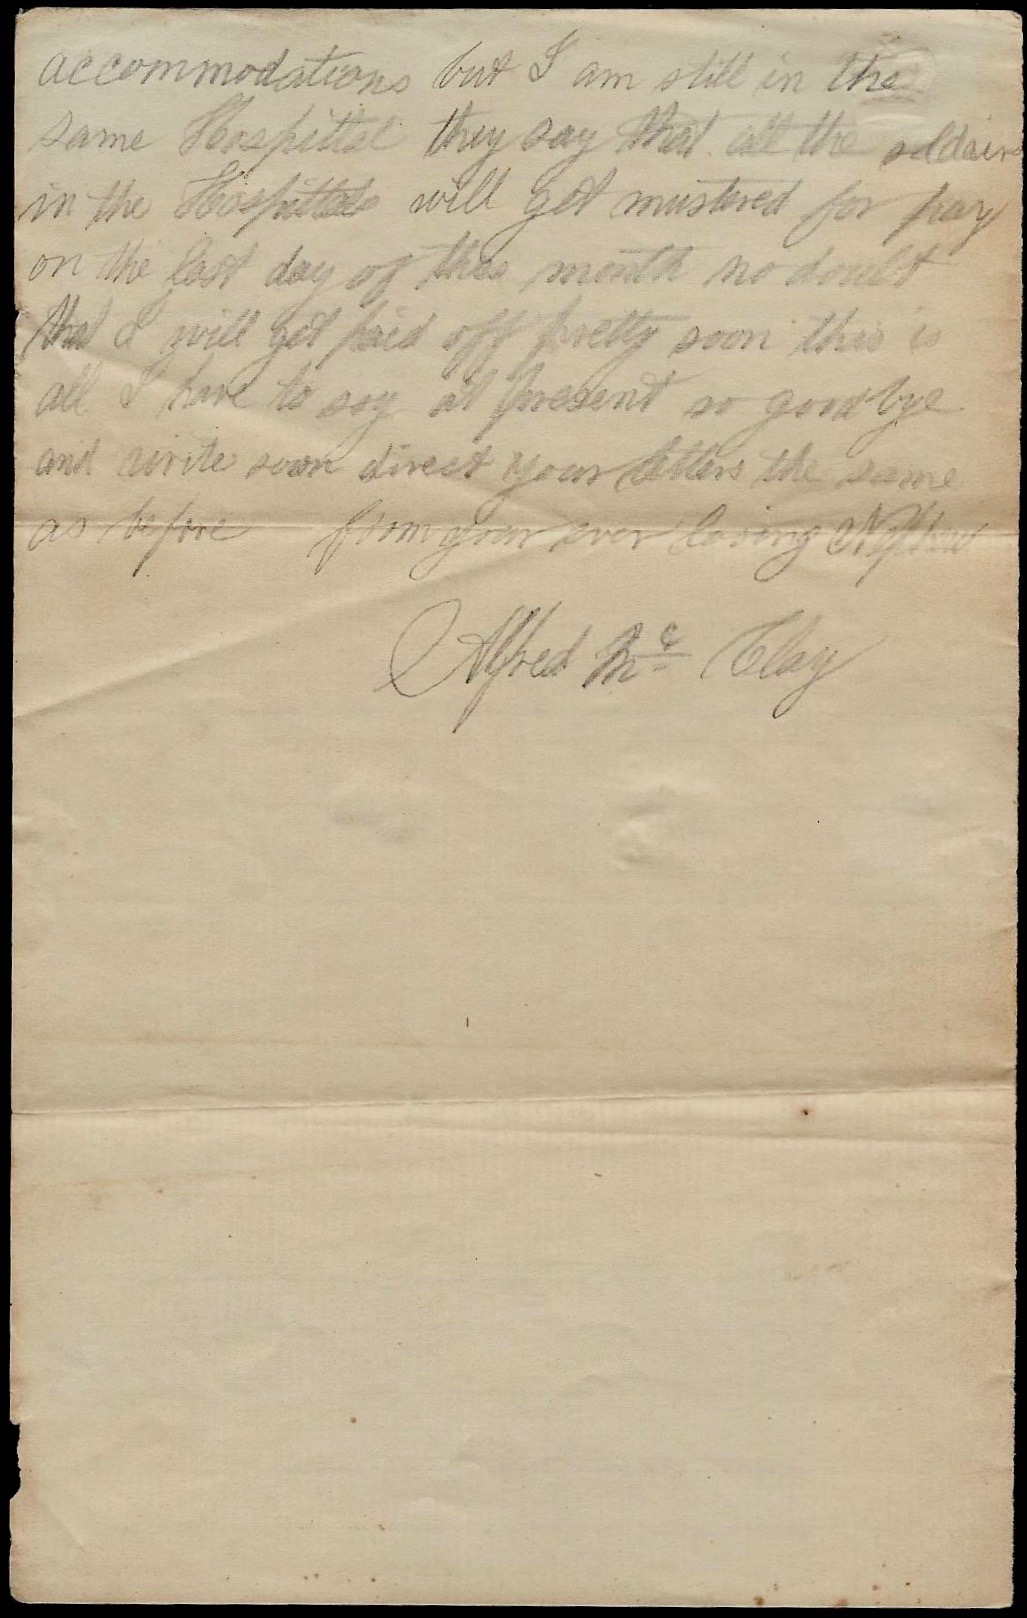 accommodations but I am still in the
same Hospittal they say that all the soldairs
in the Hospittals will get mustered for pay
on the last day of this month no doubt
that I will get paid off pretty soon this is
all I have to say at present so good bye
and write soon direct your letters the same
as before from your ever loving Nephew
Alfred Mc Clay